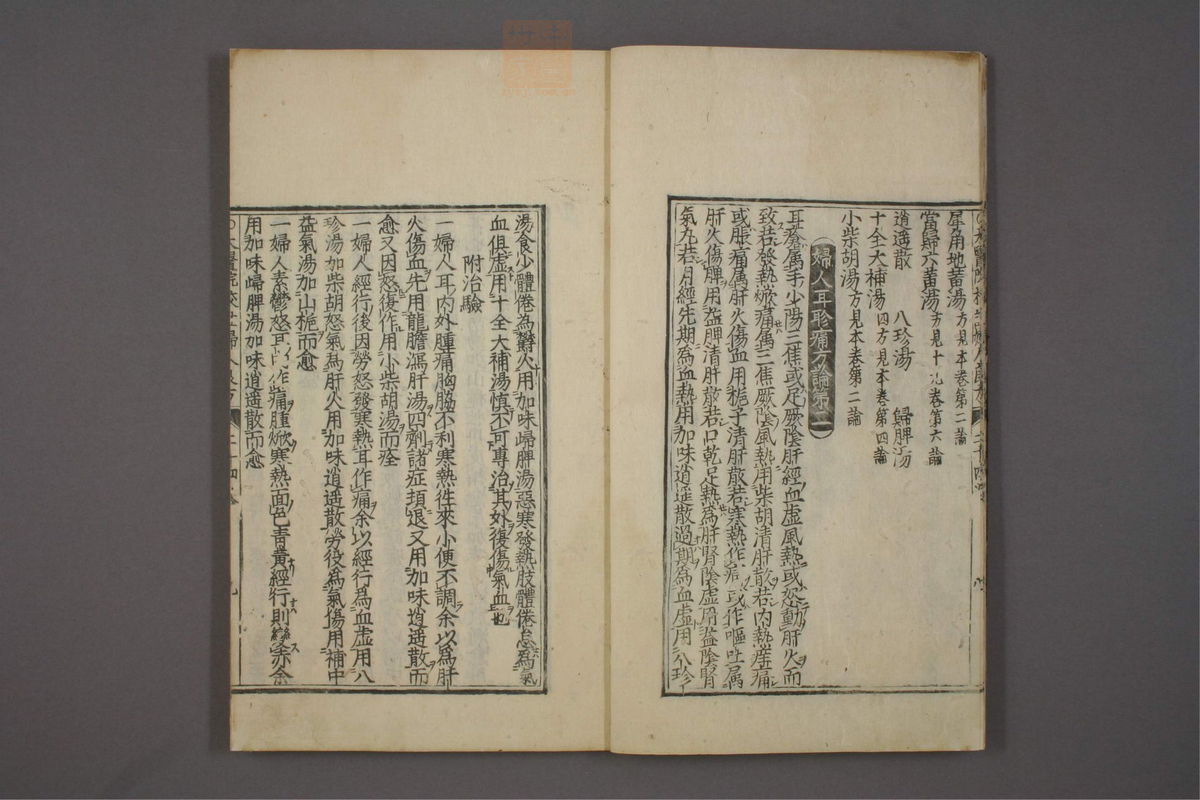 犀角地黃湯方見本卷第一論
當歸六黃湯方見十九卷第六論
逍遙散　八珍湯　歸脾湯
十全大補湯四方見本卷第四論
小柴胡湯方見本卷第二論
婦人耳聤痛方論第一
耳聤属手少陽三焦或足厥陰肝經血虚風熱或怒動肝火而
致若發熱焮痛属三焦厥陰風熱用柴胡清肝散若内熱痛
或脹痛属肝火傷血用梔子清肝散若寒熱作痛或作嘔吐属
肝火傷脾用益脾清肝散若口乾足熱為肝腎陰虚用益陰腎
氣丸若月經先期為血熱用加味逍遙散過期為血虚用八珍
湯食少體倦為欝火用加味歸脾湯惡寒發熱肢體倦怠為氣
血俱虚用十全大補湯慎不可專治其外復傷氣血也
附治驗
一婦人耳内外腫痛胸脇不利寒熱徃來小便不調余以為肝
火傷血先用龍膽瀉肝湯四劑諸症頓退又用加味逍遙散而
愈又因怒復作用小柴胡湯而痊
一婦人經行後因勞怒發寒熱耳作痛余以經行為血虚用八
珍湯加柴胡怒氣為肝火用加味逍遙散勞役為氣傷用補中
益氣湯加山梔而愈
一婦人素鬱怒耳作痛腫焮寒熱面色青黃經行則變赤余
用加味歸脾湯加味逍遙散而愈